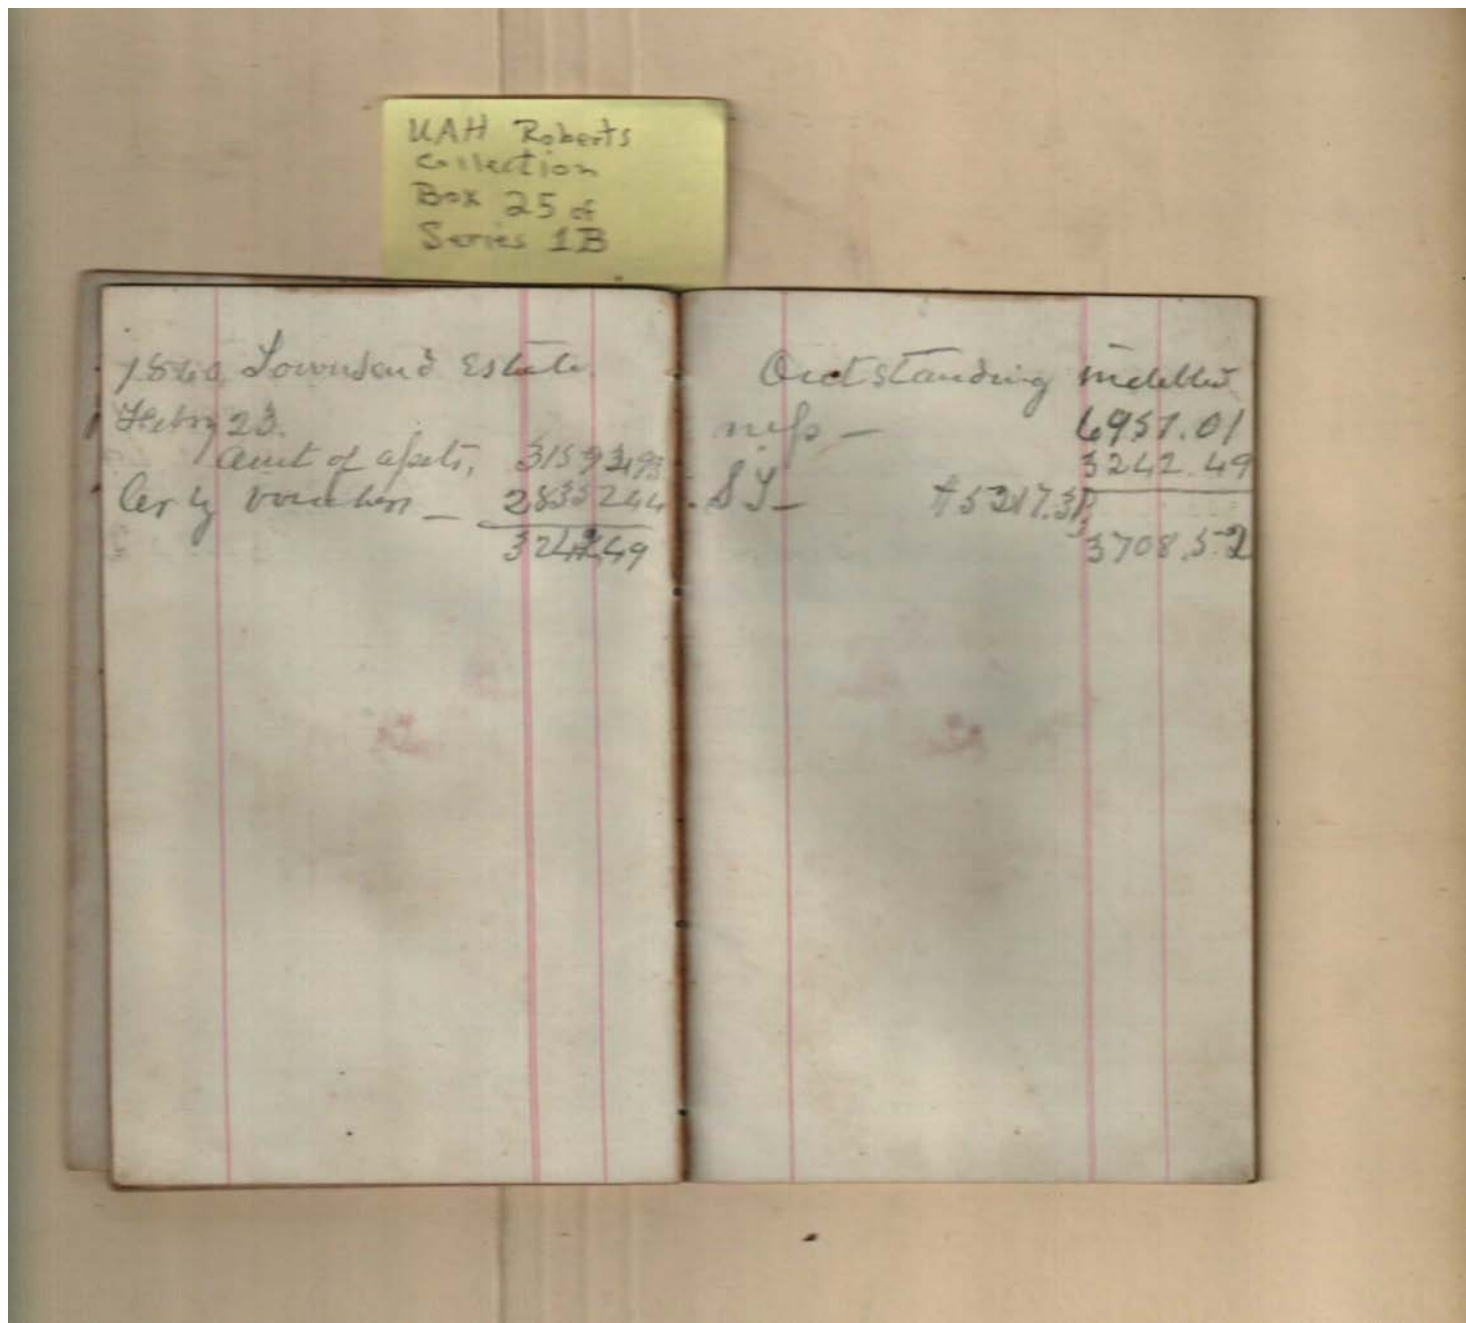 UAH Roberts
Collection
Box 25 of
Series 1B
1860 Townsend Estate
Feby 23.
Amt of assets, 31593493
Cr by vouchers — 2835244
324249
Outstanding indebted
ness — 6951.01
3242.49
S T — $5217.31
3708.52